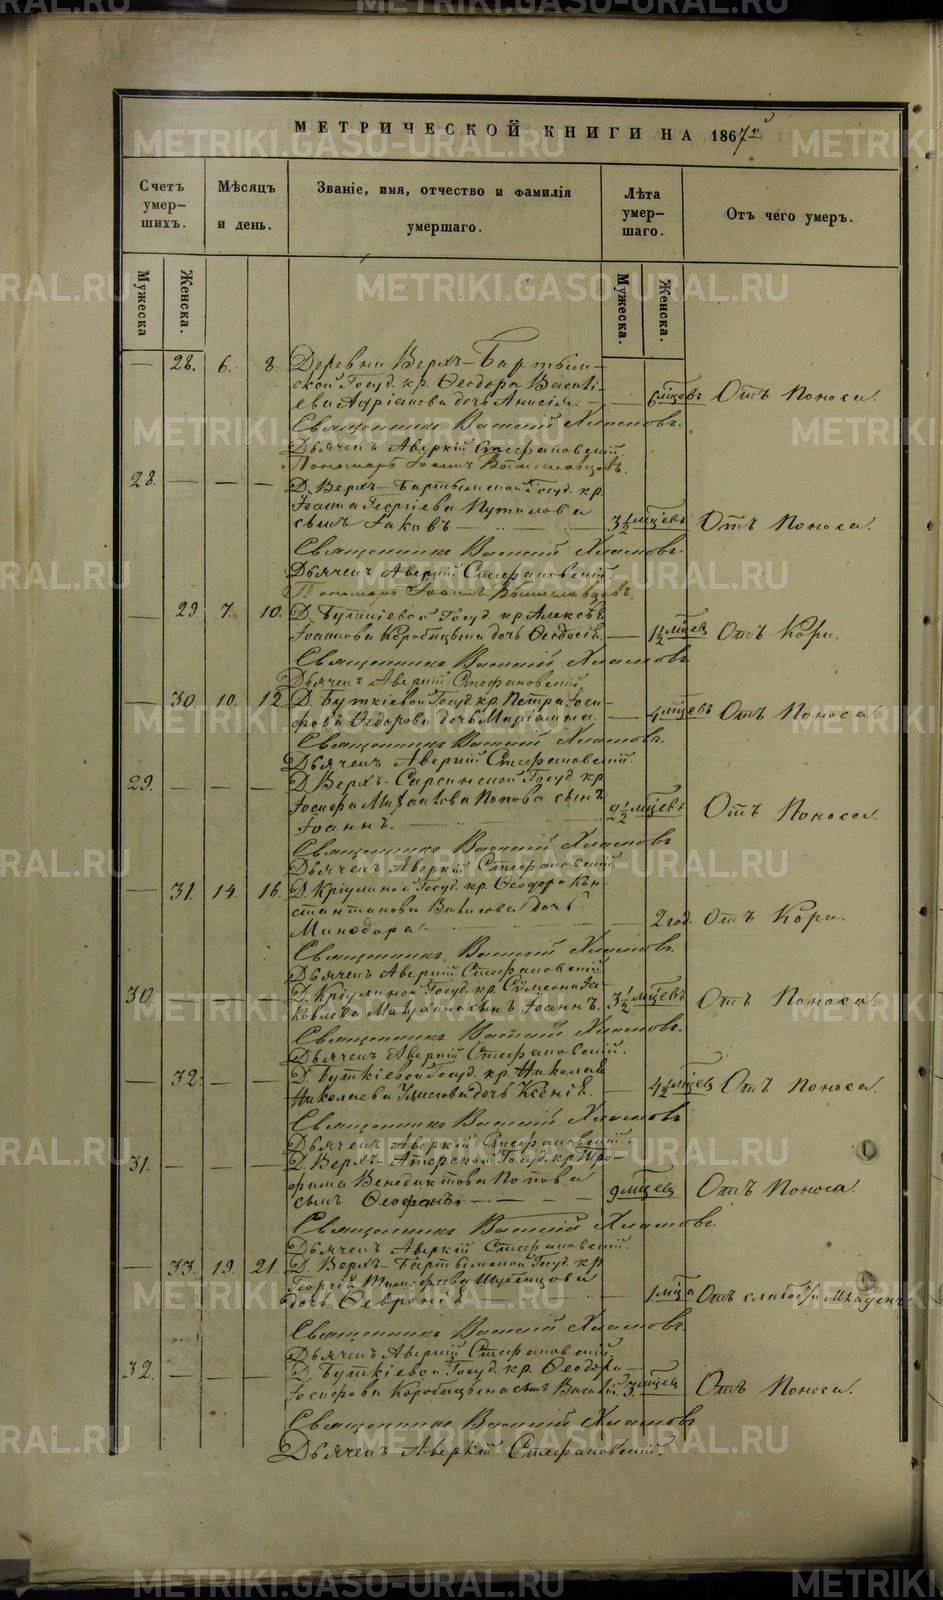 МЕТРИЧЕСКОЙ КНИГИ НА 1867й
Счетъ умер-шихъ.
Мѣсяцъ и день.
Званіе, имя, отчество и фамилія умершаго.
Лѣта умер-шаго.
Отъ чего умеръ.
Мужеска
Женска.
Мужеска.
Женска.
— 28. 6. 8. Деревни Верхъ-Бартым-
ской Госуд. кр. Ѳеодора Василі-
ева Адріанова дочь Анисія. — 6 мцевъ Отъ Поноса.
Священникъ Василій Хламовъ.
Дьячекъ Аверкій Стефановскій.
Пономарь Іоаннъ
28. — — — Д. Верхъ-Бартымской Госуд. кр.
Іоанна Георгіева Путилова
сынъ Іаковъ — 3½ мцевъ Отъ Поноса.
Священникъ Василій Хламовъ.
Дьячекъ Аверкій Стефановскій.
Пономарь Іоаннъ
— 29. 7. 10. Д. Буткіевой Госуд. кр. Алексѣя
Іоаннова Коробицына дочь Ѳеодосія. — 1½ мцев Отъ Кори.
Священникъ Василій Хламовъ
Дьячекъ Аверкій Стефановскій
— 30. 10. 12. Д. Буткіевой Госуд. кр. Петра Іоси-
фова Ѳедорова дочь Маріамна. — 4 мцевъ Отъ Поноса.
Священникъ Василій Хламовъ.
Дьячекъ Аверкій Стефановскій.
29. — — — Д. Верхъ-Сарсинской Госуд. кр.
Іосифа Михаилова Попова сынъ
Іоаннъ. — 2½ мцевъ Отъ Поноса.
Священникъ Василій Хламовъ
Дьячекъ Аверкій Стефановскій
— 31. 14. 16. Д. Кріулиной Госуд. кр. Ѳеодора Кон-
стантинова дочь
Минодора — 2 год. Отъ Кори.
Священникъ Василій Хламовъ.
Дьячекъ Аверкій Стефановскій.
30. — — — Д. Кріулиной Госуд. кр. Сѵмеона Іа-
ковлева сынъ Іоаннъ. 3½ мцевъ Отъ Поноса.
Священникъ Василій Хламовъ.
Дьячекъ Аверкій Стефановскій.
— 32. — — Д. Буткіевой Госуд. кр. Николая
Николаева дочь Ксенія. — 4½ мцев Отъ Поноса.
Священникъ Василій Хламовъ
Дьячекъ Аверкій Стефановскій.
31. — — — Д. Верхъ-Атерской Госуд. кр. Тро-
фима Венедиктова Попова
сынъ Ѳеофанъ. — 9 мцев Отъ Поноса.
Священникъ Василій Хламовъ.
Дьячекъ Аверкій Стефановскій.
— 33. 19. 21. Д. Верхъ-Бартымской Госуд. кр.
Георгія Тимофеева
дочь Февронія — 1 мца Отъ слабости Младенч.
Священникъ Василій Хламовъ.
Дьячекъ Аверкій Стефановскій.
32. — — — Д. Буткіевой Госуд. кр. Ѳеодора
Іосифова Коробицына сынъ Василій. 3 мцев Отъ Поноса.
Священникъ Василій Хламовъ
Дьячекъ Аверкій Стефановскій.
METRIKI.GASO-URAL.RU